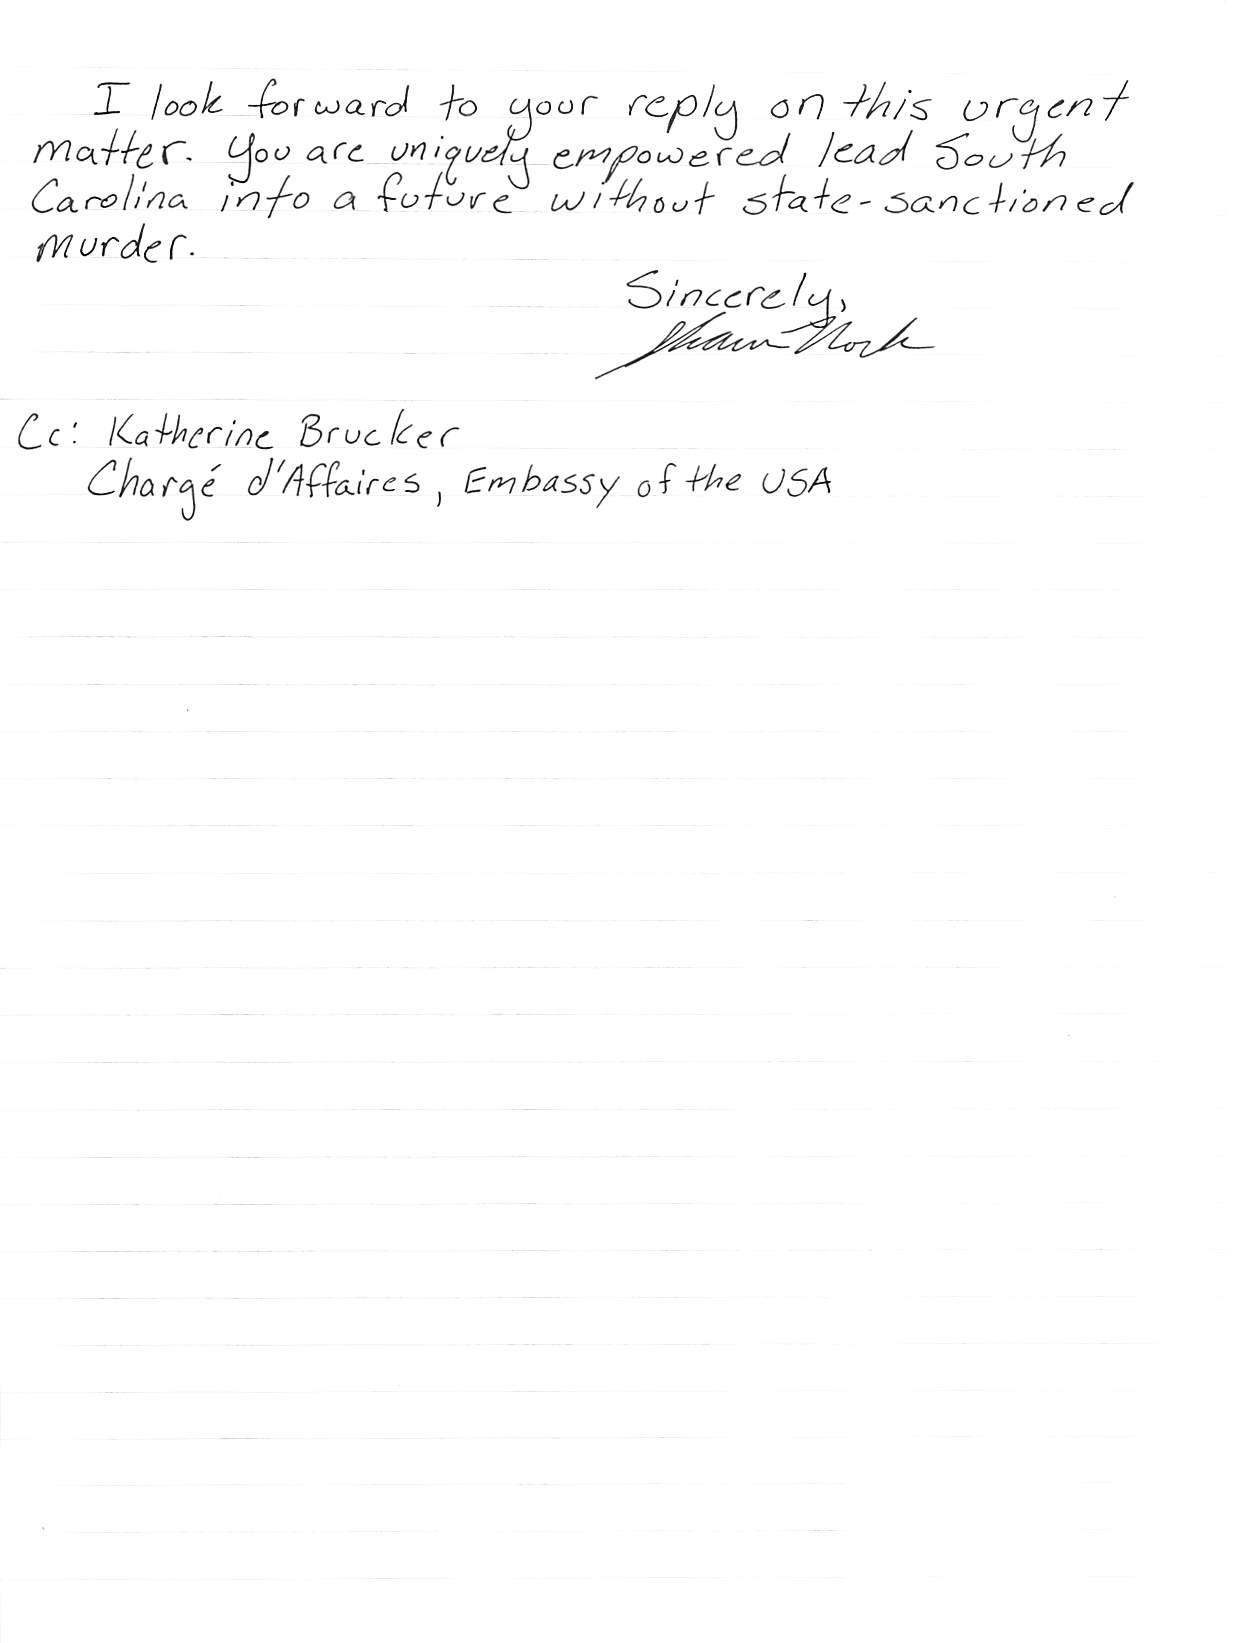 I look forward to your reply on this urgent
matter. You are uniquely empowered lead South
Carolina into a future without state-sanctioned
murder.
Sincerely,
Cc: Katherine Brucker
Chargé d'Affaires, Embassy of the USA